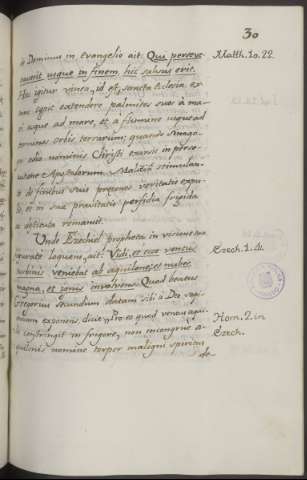 30
o Dominus in evangelio ait: Qui perseve-
raverit usque in finem, hic salvus erit.
Matth. 10. 22.
Hæc igitur vinea, id est, sancta Ecclesia, ex
tunc cœpit extendere palmites suos à ma-
ri usque ad mare, et a flumine usque ad
terminos orbis terrarum; quando Synago-
ga odio nominis Christi exarsit in perse-
cutione Apostolorum, stimulan-
de finibus suis præcones veritatis expu-
lit, et in suæ pravitatis perfidia frigida
remansit.
Unde Ezechiel propheta in visione
loquens, ait: Vidi, et ecce ventus
Ezech. 1. 4.
turbinis veniebat ab aquilone, et nubes
magna, et ignis involvens. Quod beatus
Gregorius secundum datam sibi à Deo
exponens, dicit: Pro eo quod ventus aqui-
Hom. 2. in
constringit in frigore, non incongrue a-
Ezech.
quilonis nomine torpor maligni spiritus
de-